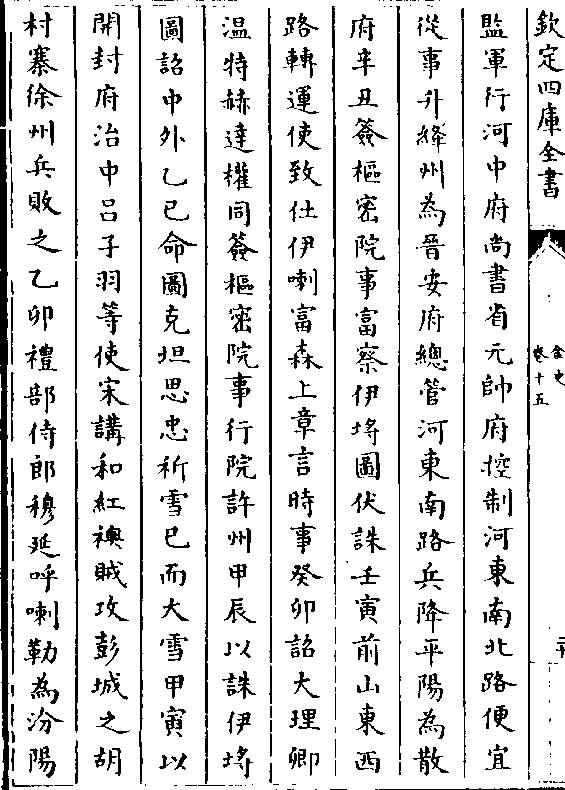 欽定四庫全書
金史
卷十五
監軍行河中府尚書省元帥府控制河東南北路便宜
從事升絳州為晉安府總管河東南路兵降平陽為散
府辛丑簽樞密院事富察伊埒圖伏誅壬寅前山東西
路轉運使致仕伊喇富森上章言時事癸卯詔大理卿
温特赫達權同簽樞密院事行院許州甲辰以誅伊埒
圖詔中外乙巳命圖克坦思忠祈雪已而大雪甲寅以
開封府治中吕子羽等使宋講和紅襖賊攻彭城之胡
村寨徐州兵敗之乙卯禮部侍郎穆延呼喇勒為汾陽